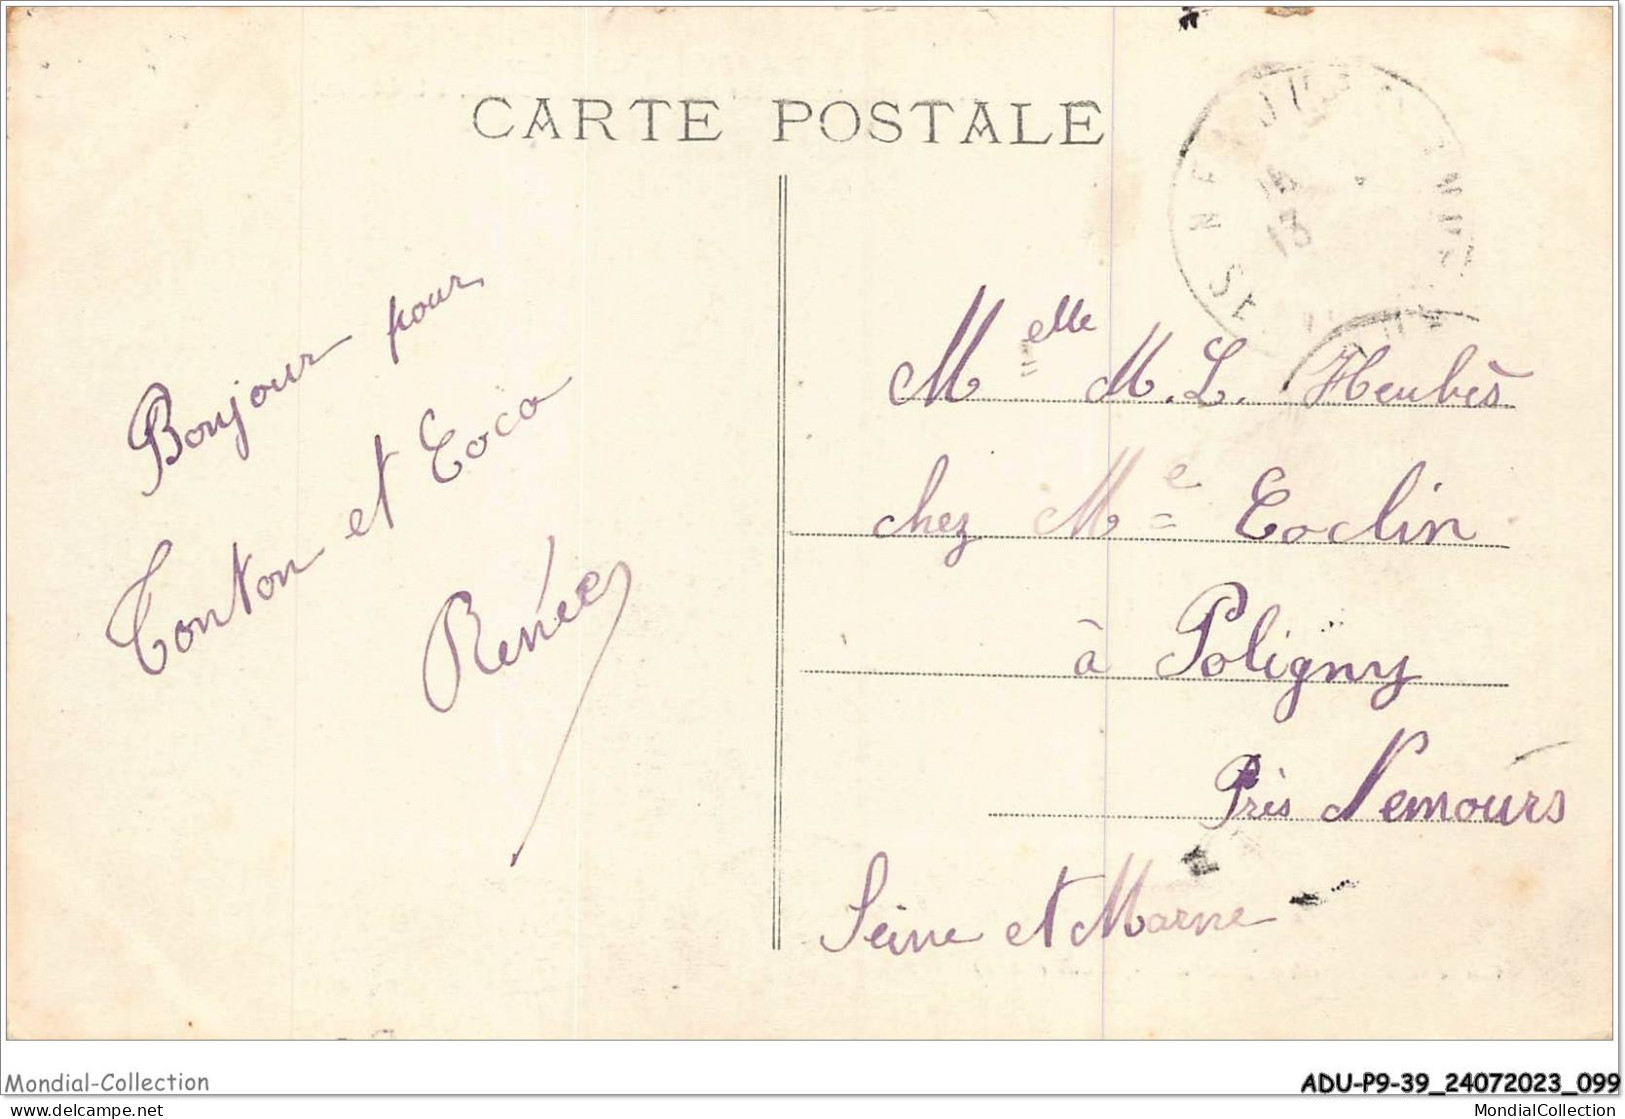 CARTE POSTALE
Bonjour pour
Tonton et Coco
Renée
Melle M. L. Heubès
chez Me Coclin
à Poligny
Près Nemours
Seine et Marne
13
Mondial-Collection
ADU-P9-39_24072023_099
www.delcampe.net
MondialCollection